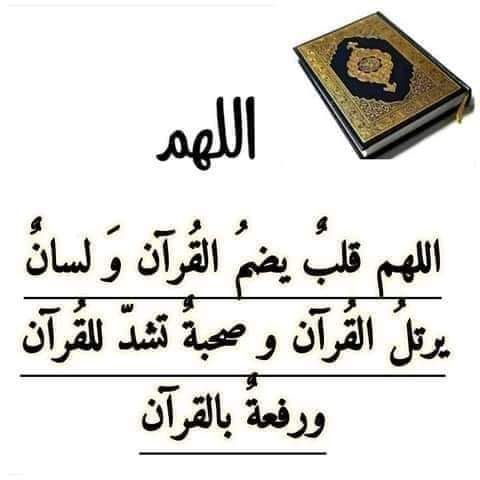 اللهم
اللهم قلبٌ يضمُ القُرآن وَ لسانٌ
يرتلُ القُرآن و صحبةٌ تشدّ للقُرآن
ورفعةٌ بالقرآن